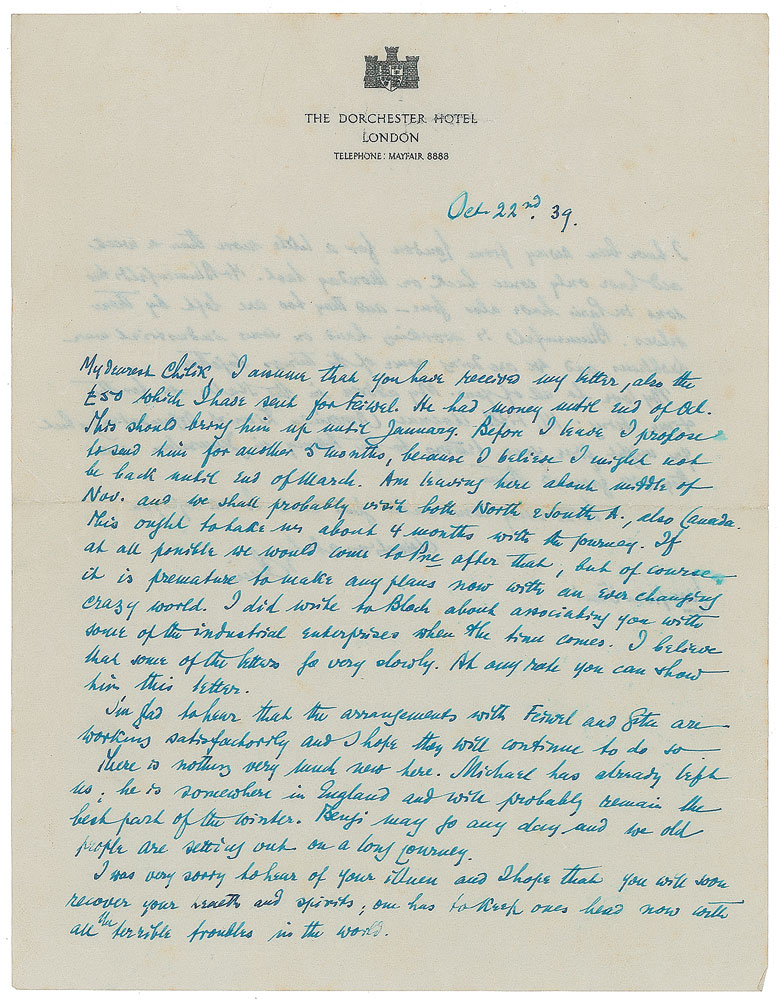 THE DORCHESTER HOTEL
LONDON
TELEPHONE: MAYFAIR 8888
Oct. 22nd. 39.
My dearest Chilik, I assume that you have received my letter, also the
£50 which I have sent for Feiwel. He had money until end of Oct.
This should bring him up until January. Before I leave I propose
to send him for another 3 months, because I believe I might not
be back until end of March. Am leaving here about middle of
Nov. and we shall probably visit both North & South A., also Canada.
This ought to take us about 4 months with the journey. If
at all possible we would come to after that, but of course
it is premature to make any plans now with an ever changing
crazy world. I did write to Bloch about associating you with
some of the industrial enterprises when the time comes. I believe
that some of the letters go very slowly. At any rate you can show
him this letter.
I'm glad to hear that the arrangements with Feiwel and Gita are
working satisfactorily and I hope they will continue to do so
There is nothing very much new here. Michael has already left
us; he is somewhere in England and will probably remain the
best part of the winter. Benji may go any day and we old
people are setting out on a long journey.
I was very sorry to hear of your illness and I hope that you will soon
recover your health and spirits; one has to keep ones head now with
all the terrible troubles in the world.